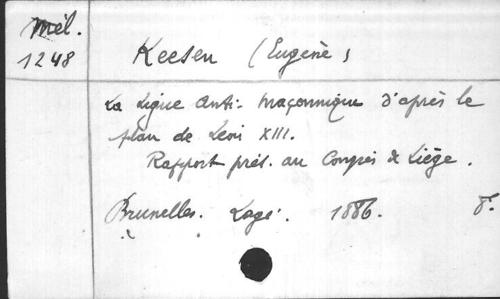 Mél.
1248
Keesen (Eugène)
La Ligue anti-maçonnique d'après le
plan de Léon XIII.
Rapport prés. au Congrès de Liège.
Bruxelles. 1886. 8°.